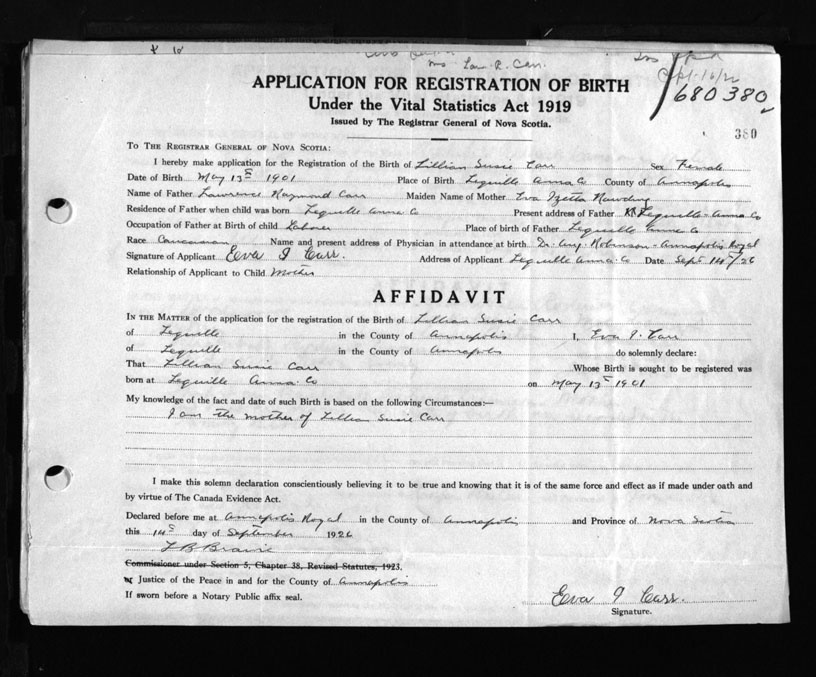 Mrs Law. R. Carr.
Sept. 16/26
680380
380
APPLICATION FOR REGISTRATION OF BIRTH
Under the Vital Statistics Act 1919
Issued by The Registrar General of Nova Scotia.
TO THE REGISTRAR GENERAL OF NOVA SCOTIA:
I hereby make application for the Registration of the Birth of Lillian Susie Carr Sex Female
Date of Birth May 13th 1901 Place of Birth Lequille Anna Co County of Annapolis
Name of Father Lawrence Raymond Carr Maiden Name of Mother Eva Izetta Hawding
Residence of Father when child was born Lequille Anna Co Present address of Father Lequille - Anna Co
Occupation of Father at Birth of child Laborer Place of birth of Father Lequille Anna Co
Race Caucasian Name and present address of Physician in attendance at birth Dr. Aug. Robinson - Annapolis Royal
Signature of Applicant Eva I Carr. Address of Applicant Lequille Anna. Co Date Sept 14th/26
Relationship of Applicant to Child Mother
AFFIDAVIT
IN THE MATTER of the application for the registration of the Birth of Lillian Susie Carr
of Lequille in the County of Annapolis I, Eva I. Carr
of Lequille in the County of Annapolis do solemnly declare:
That Lillian Susie Carr Whose Birth is sought to be registered was
born at Lequille Anna. Co on May 13th 1901
My knowledge of the fact and date of such Birth is based on the following Circumstances:—
I am the mother of Lillian Susie Carr
I make this solemn declaration conscientiously believing it to be true and knowing that it is of the same force and effect as if made under oath and
by virtue of The Canada Evidence Act.
Declared before me at Annapolis Royal in the County of Annapolis and Province of Nova Scotia
this 14th day of September 1926
Commissioner under Section 5, Chapter 38, Revised Statutes, 1923.
Justice of the Peace in and for the County of Annapolis
If sworn before a Notary Public affix seal.
Eva I Carr.
Signature.